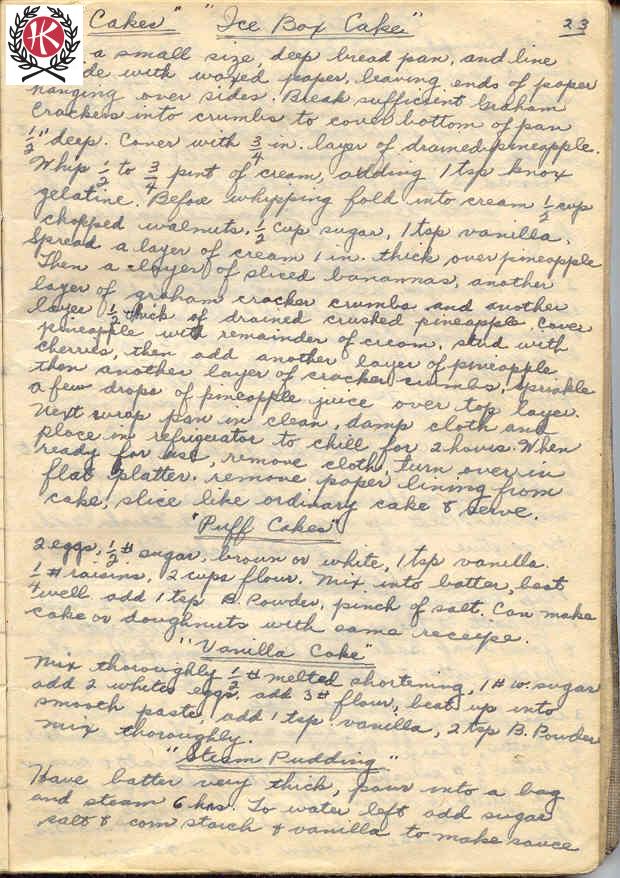 HK
Cakes" "Ice Box Cake" 23
a small size, deep bread pan, and line
de with waxed paper, leaving ends of paper
hanging over sides. Break sufficient Graham
crackers into crumbs to cover bottom of pan
1/2" deep. Cover with 3/4 in. layer of drained pineapple.
Whip 1/2 to 3/4 pint of cream, adding 1 tsp Knox
gelatine. Before whipping fold into cream 1/2 cup
chopped walnuts, 1/2 cup sugar, 1 tsp vanilla.
Spread a layer of cream 1 in. thick over pineapple
Then a layer of sliced banannas, another
layer of graham cracker crumbs and another
layer 1/2 thick of drained crushed pineapple, cover
pineapple with remainder of cream, stud with
cherries, then add another layer of pineapple
then another layer of cracker crumbs, sprinkle
a few drops of pineapple juice over top layer.
Next wrap pan in clean, damp cloth and
place in refrigiator to chill for 2 hours. When
ready for use, remove cloth, turn over in
flat platter. remove paper lining from
cake, slice like ordinary cake & serve.
"Puff Cakes"
2 eggs, 1/2 # sugar, brown or white, 1 tsp vanilla.
1/4 # raisins, 2 cups flour. Mix into batter, beat
well add 1 tsp B. Powder, pinch of salt. Can make
cake or doughnuts with same receipe.
"Vanilla Cake"
Mix thoroughly 1/2 # melted shortening, 1 # w. sugar
add 2 whites eggs, add 3 # flour, beat up into
smooth paste, add 1 tsp. vanilla, 2 tsp B. Powder
mix thoroughly.
"Steam Pudding"
Have batter very thick, pour into a bag
and steam 6 hrs. To water left add sugar
salt & corn starch & vanilla to make sauce